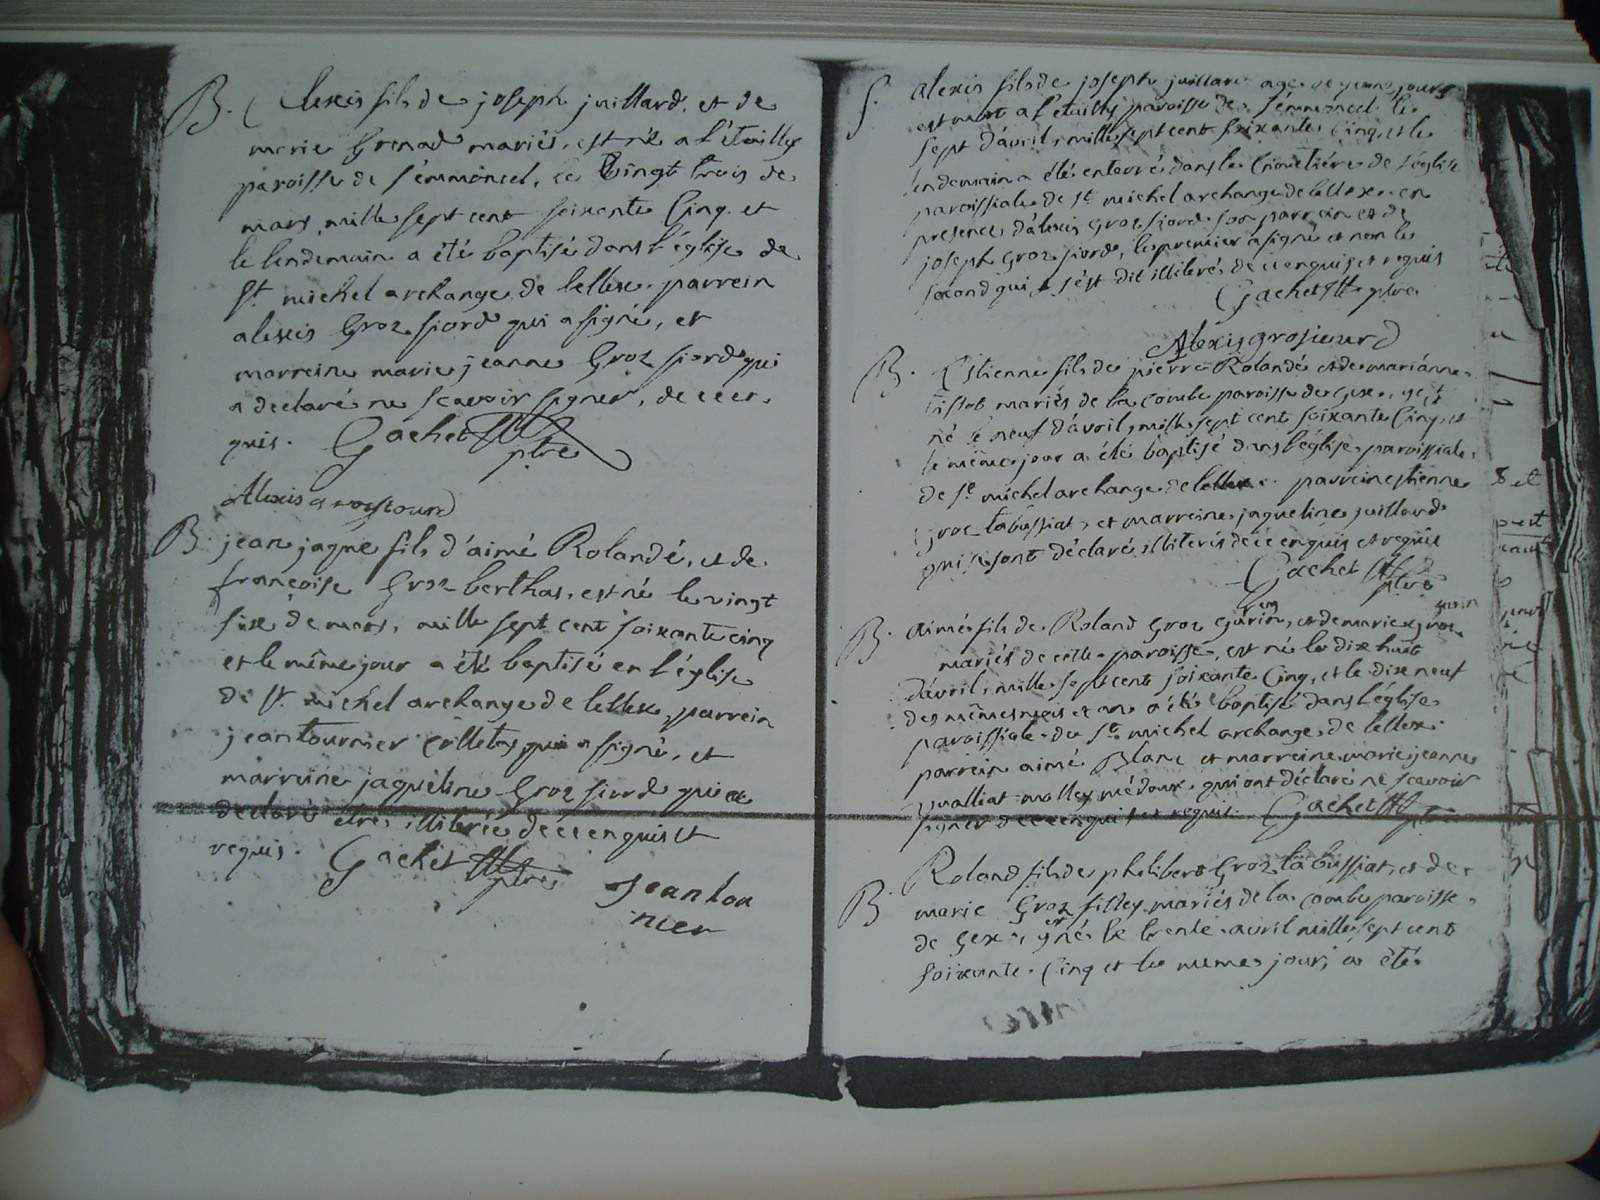 B. Alexis fils de joseph juillard, et de
marie Grenad mariés, est né a l'étailley
paroisse de s'emmoncel, le Vingt trois de
mars, mille sept cent soixante Cinq. et
le lendemain a été baptisé dans l'église de
St. michel archange de lellex. parrein
alexis Groz siord qui a signé, et
marreine marie jeanne Groz siord qui
a declaré ne scavoir signer, de ce er.
quis. Gachet ptre
Alexis
B. jean jaque fils d'aimé Rolandé, et de
françoise Groz berthas, est né le vingt
sixe de mars, mille sept cent soixante cinq
et le même jour a été baptisé en l'église
de St. michel archange de lellex, parrein
jean tournier colletes qui a signé, et
marreine jaqueline Groz siord qui a
declaré etre illiterée de ce enquis et
requis. Gachet ptre
jean tou
nier
S. alexis fils de joseph juillard agé de jours
est mort a l'etailley paroisse de s'emmoncel le
sept d'avril, mille sept cent soixante Cinq, et le
lendemain a été enterré dans le Cimetière de l'église
paroissiale de St. michel archange de lellex. en
presence d'alexis Groz siord son parrein et de
joseph Groz siord, le premier a signé et non le
second qui s'est dit illiterés de ce enquis et requis
Gachet ptre
Alexis grosieurd
B. Estienne fils de pierre Rolandé et de marianne
mariés de la Combe paroisse de Gex, est
né le neuf d'avril, mille sept cent soixante Cinq, et
le même jour a été baptisé dans l'église paroissiale
de St. michel archange de lellex. parrein estienne
Groz labussiat, et marreine jaqueline juillard
qui se sont déclaré illiterés de ce enquis et requis
Gachet ptre
B. Aimé fils de Roland Groz Gurin, et de marie Groz
mariés de cette paroisse, est né le dixe huit
d'avril, mille sept cent soixante Cinq, et le dixe neuf
des mêmes mois et an a été baptisé dans l'église
paroissiale de St. michel archange de lellex.
parrein aimé Blanc et marreine marie jeanne
molley médoux qui ont déclaré ne scavoir
signer de ce enquis et requis. Gachet ptre
B. Roland fils de philibert Groz labussiat, et de
marie Groz filley mariés de la Combe paroisse
de Gex, est né le trente avril mille sept cent
soixante Cinq et le même jour, a été